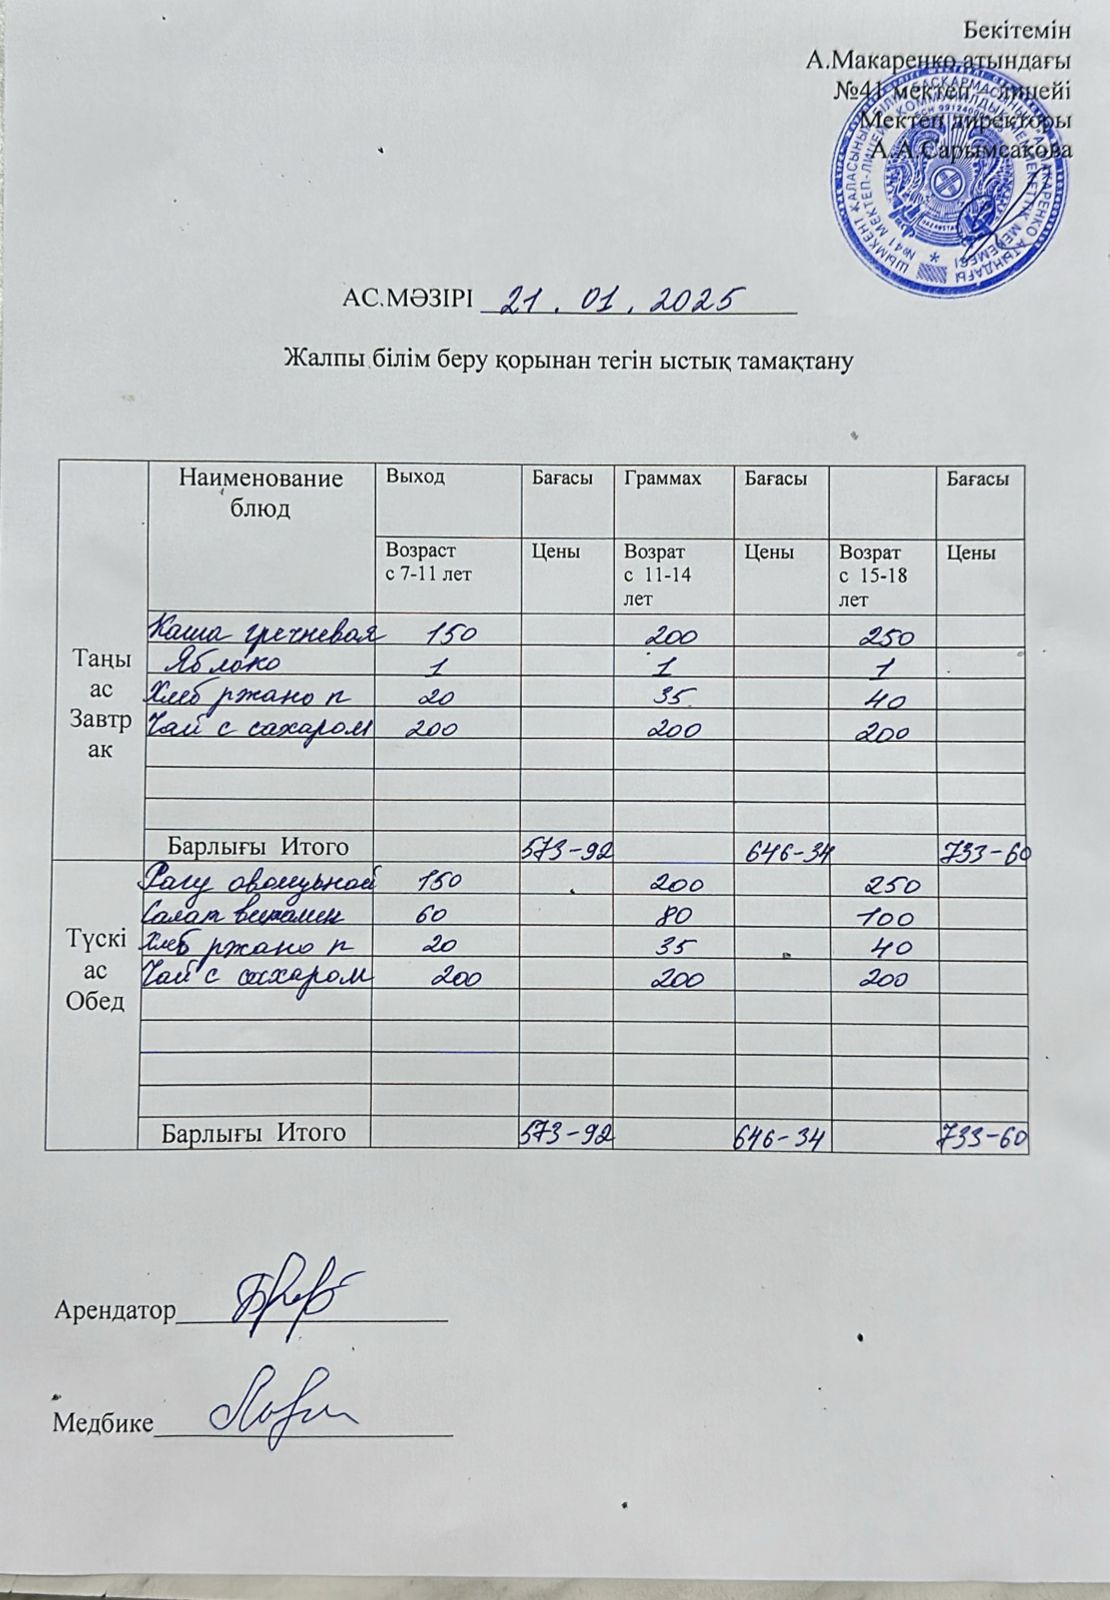 Бекітемін
А.Макаренко атындағы
№41 мектеп – лицейі
Мектеп директоры
А.А.Сарымсакова
АС.МӘЗІРІ 21.01.2025
Жалпы білім беру қорынан тегін ыстық тамақтану
Наименование блюд Выход Бағасы Граммах Бағасы Бағасы
Возраст с 7-11 лет Цены Возрат с 11-14 лет Цены Возрат с 15-18 лет Цены
Таңы ас Завтрак
Каша гречневая 150 200 250
Яблоко 1 1 1
Хлеб ржано п 20 35 40
Чай с сахаром 200 200 200
Барлығы Итого 573-92 646-34 733-60
Түскі ас Обед
Рагу овощьной 150 200 250
Салат витамин 60 80 100
Хлеб ржано п 20 35 40
Чай с сахаром 200 200 200
Барлығы Итого 573-92 646-34 733-60
Арендатор
Медбике